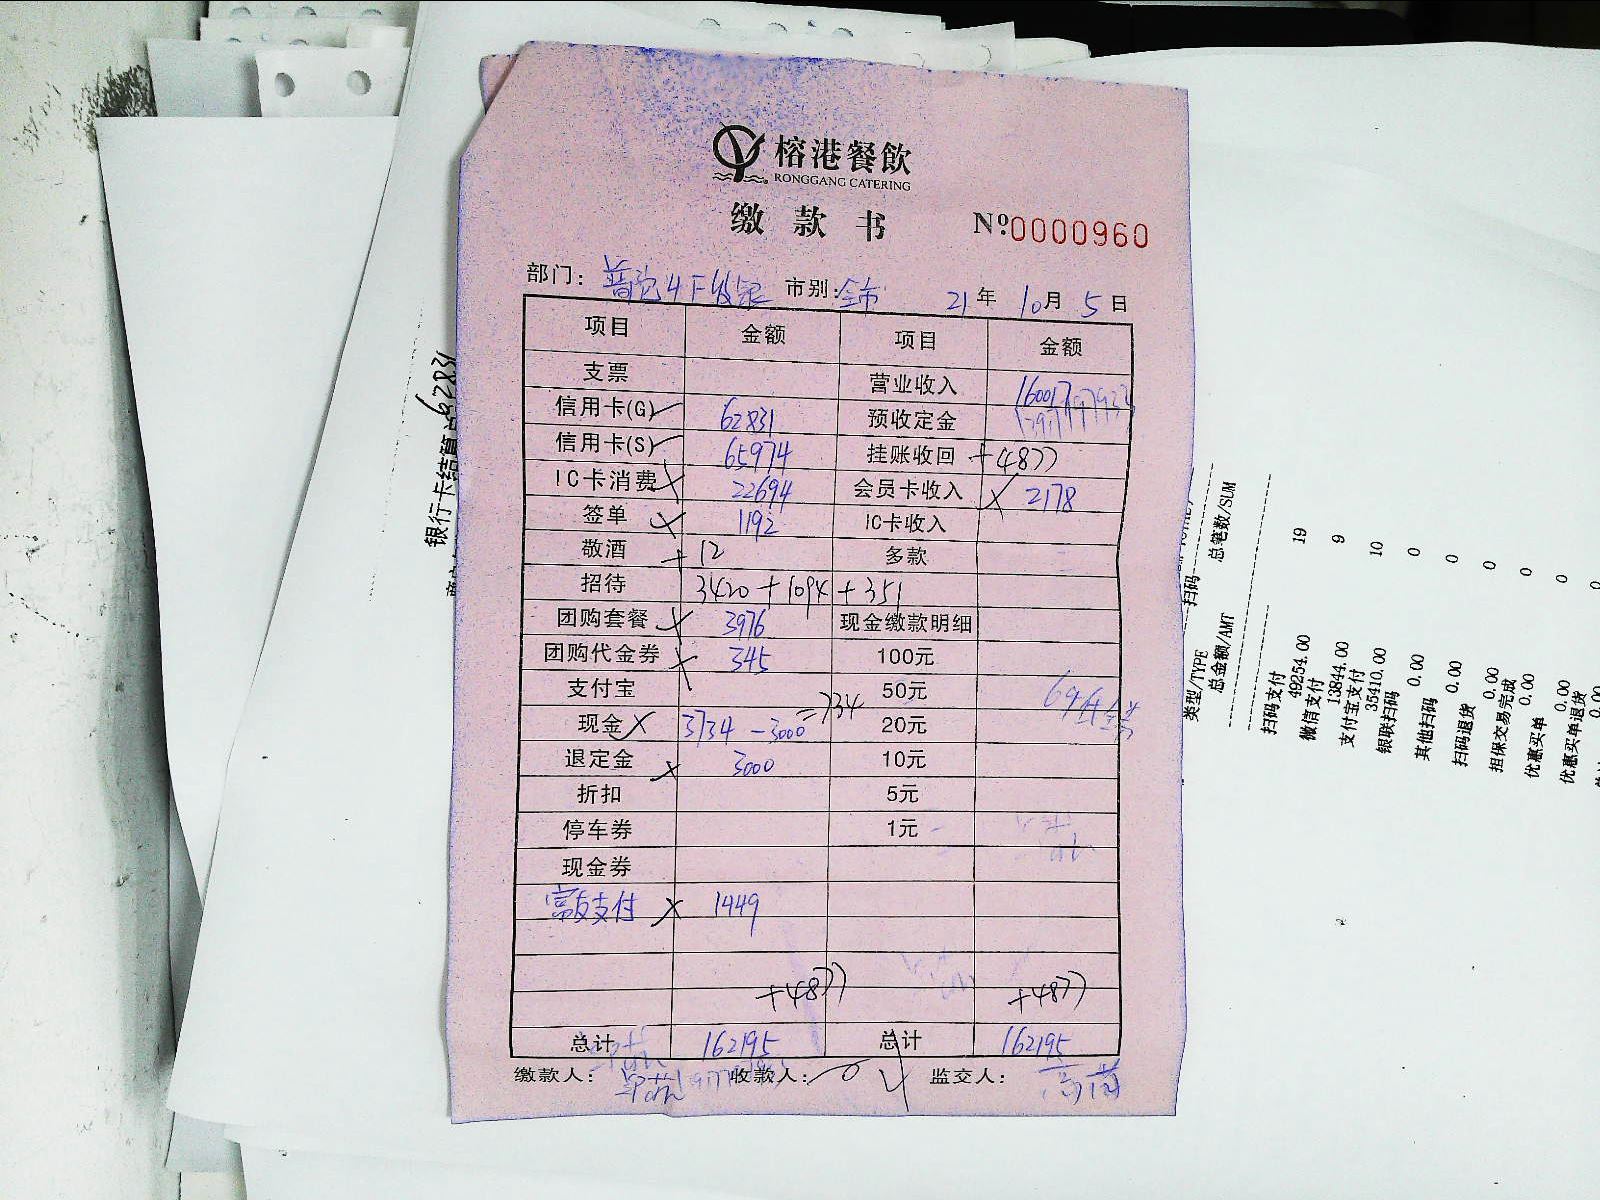 榕港餐飲
RONGGANG CATERING
缴款书 №:0000960
部门: 普 4F 收 市别: 全市 21年 10月 5日
项目 金额 项目 金额
支票 营业收入 160017
信用卡(G) 62831 预收定金
信用卡(S) 65974 挂账收回 +4877
IC卡消费 22694 会员卡收入 2178
签单 1192 IC卡收入
敬酒 +12 多款
招待 3420+1094+351
团购套餐 3976 现金缴款明细
团购代金券 345 100元
支付宝 50元
现金 3734-3000=734 20元
退定金 3000 10元
折扣 5元
停车券 1元
现金券
富友支付 1449
+4877 +4877
总计 162195 总计 162195
缴款人: 收款人: 监交人:
银行卡结算 62831
类型/TYPE 扫码
总金额/AMT 总笔数/SUM
扫码支付
49254.00 19
微信支付
13844.00 9
支付宝支付
35410.00 10
银联扫码
0.00 0
其他扫码
0.00 0
扫码退货
0.00 0
担保交易完成
0.00 0
优惠买单
0.00 0
优惠买单退货
0.00 0